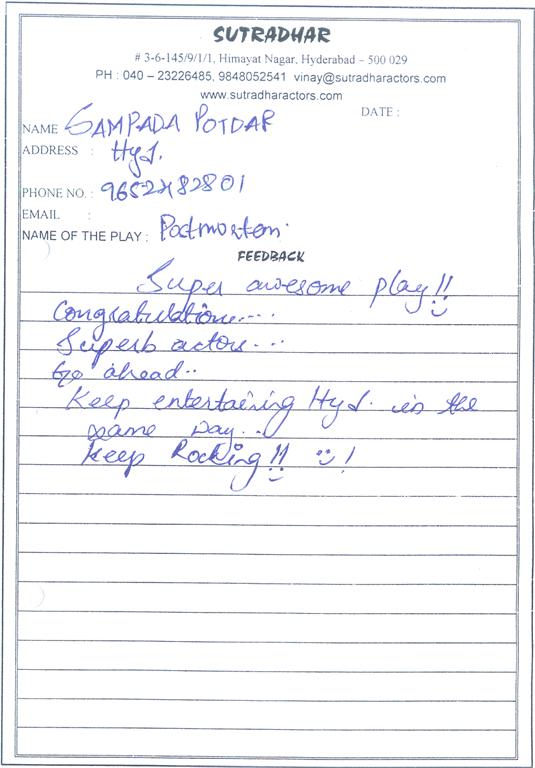 SUTRADHAR
# 3-6-145/9/1/1, Himayat Nagar, Hyderabad – 500 029
PH : 040 – 23226485, 9848052541 vinay@sutradharactors.com
www.sutradharactors.com
DATE :
NAME SAMPADA POTDAR
ADDRESS : Hyd.
PHONE NO. :
EMAIL :
NAME OF THE PLAY : Postmortem.
FEEDBACK
Super awesome play!!
Congratulations....
Superb actors...
Go ahead..
Keep entertaining Hyd. in the
same way...
Keep Rocking!! !